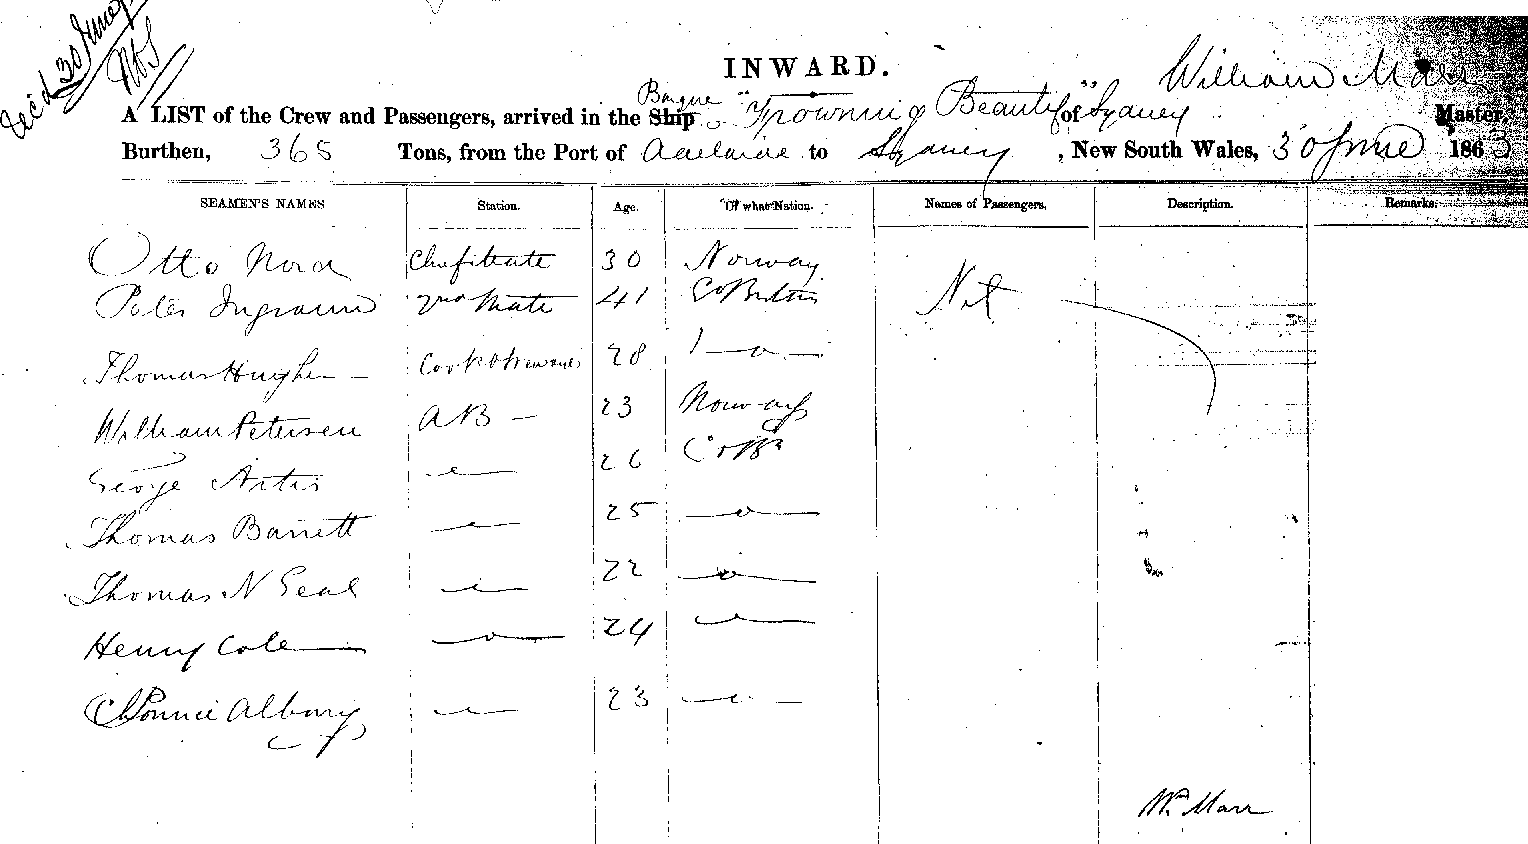 Rec'd 30 June
INWARD.
A LIST of the Crew and Passengers, arrived in the Ship Barque "Frowning Beauty" of Sydney William Marr Master,
Burthen, 365 Tons, from the Port of Adelaide to Sydney, New South Wales, 30 June 1863
SEAMEN'S NAMES Station. Age. Of what Nation. Names of Passengers, Description. Remarks.
Otto Nord Chief Mate 30 Norway Nil
Peter Ingram 2nd Mate 41 Gt Britain
Thomas Hughes Cook & Steward 28 " o
William Petersen AB 23 Norway
George Artis " 26 Gt Bn
Thomas Barrett " 25 " o
Thomas N Geal " 22 " o
Henry Cole " o 24 "
Albury " 23 "
Wm Marr